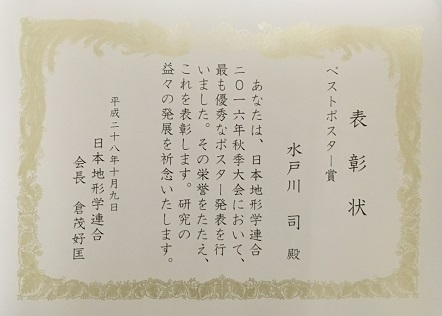 表彰状
ベストポスター賞
水戸川 司 殿
あなたは、日本地形学連合
二〇一六年秋季大会において、
最も優秀なポスター発表を行
いました。その栄誉をたたえ、
これを表彰します。研究の
益々の発展を祈念いたします。
平成二十八年十月九日
日本地形学連合
会長 倉茂好匡